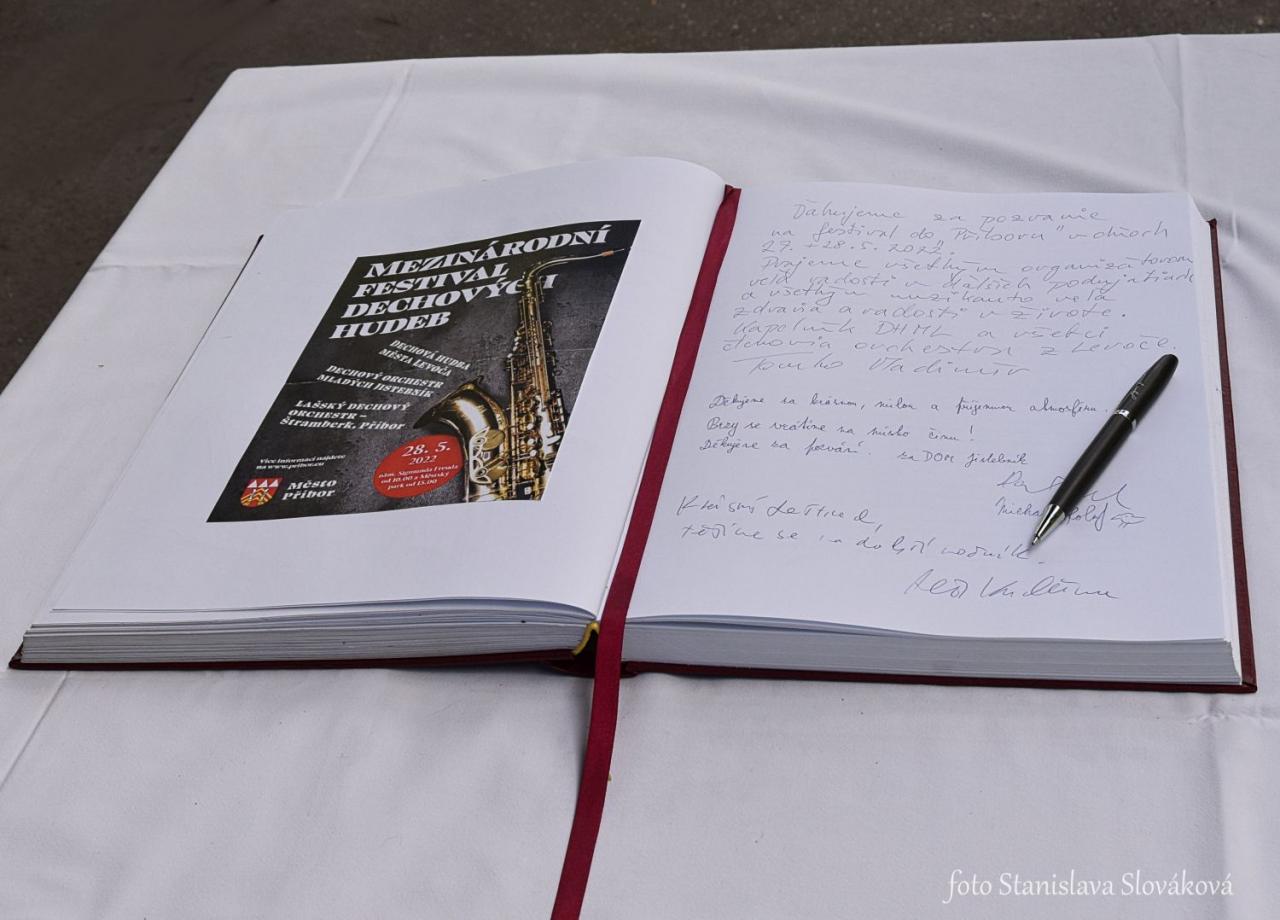 MEZINÁRODNÍ
FESTIVAL
DECHOVÝCH
HUDEB
DECHOVÁ HUDBA
MĚSTA LEVOČA
DECHOVÝ ORCHESTR
MLADÝCH JISTEBNÍK
LAŠSKÝ DECHOVÝ
ORCHESTR –
ŠTRAMBERK, PŘÍBOR
28. 5.
2022
nám. Sigmunda Freuda
od 10.00 a Městský
park od 15.00
Více informací najdete
na www.pribor.eu
Město
Příbor
Ďakujeme za pozvanie
na festival do "Příbora" v dňoch
27. + 28. 5. 2022.
Prajeme všetkým organizátorom
veľa radosti v ďalších podujatiach
a všetkým muzikanto veľa
zdravia a radosti v živote.
Kapelník DHML a všetci
členovia orchestra z Levoče.
Tomko Vladimír
Děkujeme za krásnou, milou a příjemnou atmosféru.
Brzy se vrátíme na místo činu!
Děkujeme za pozvání. za DOM Jistebník
Krásný
těšíme se na další ročník.
foto Stanislava Slováková